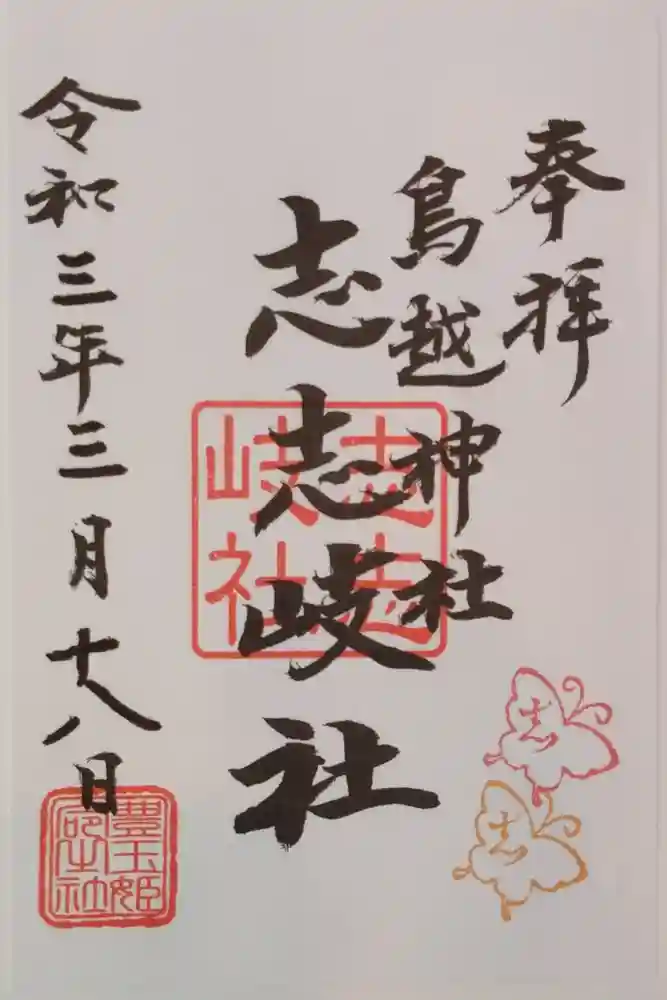 奉拝
鳥越神社
志志岐社
志志岐社
令和三年三月十八日
豊玉姫
命士社
志
志